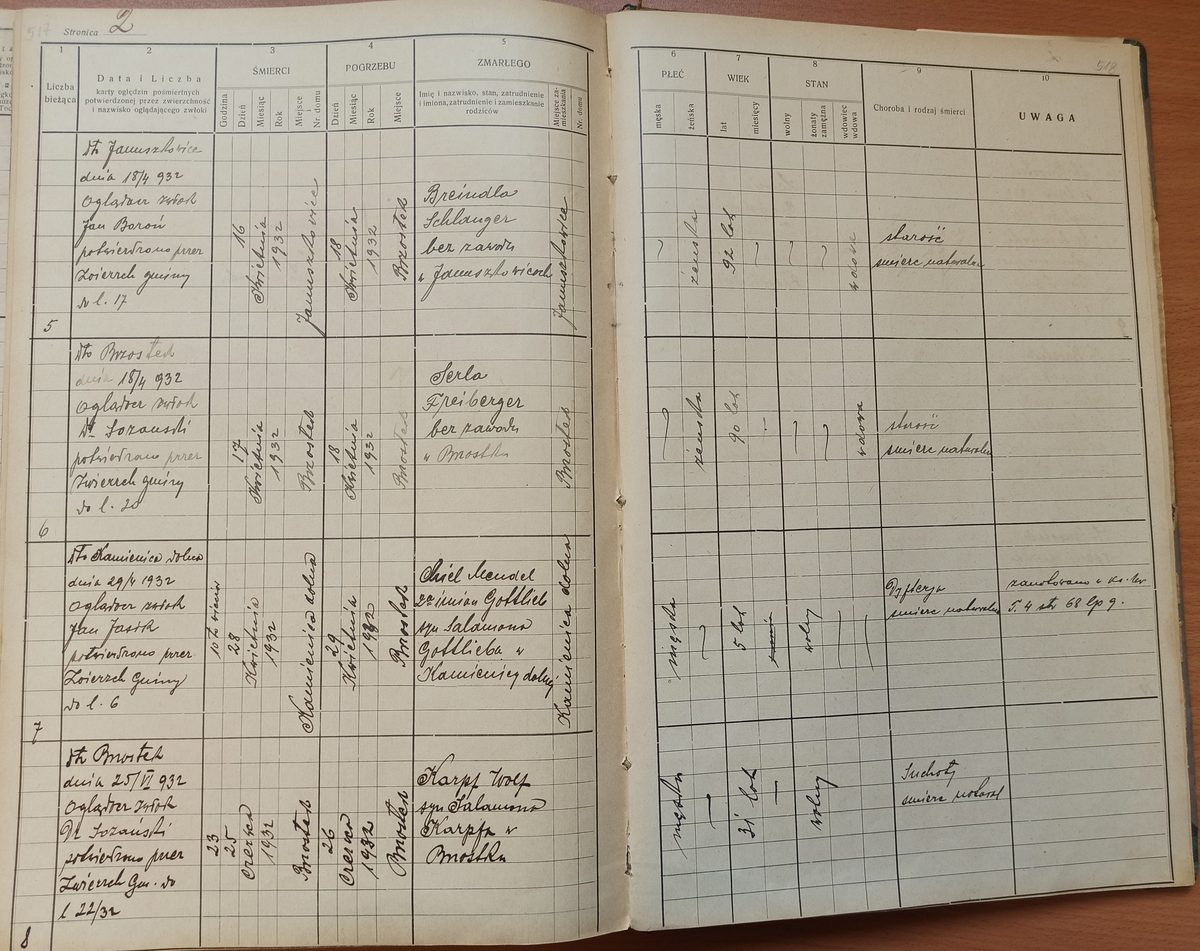 517
Stronica 2
1
2
3
4
5
Liczba
bieżąca
Data i Liczba
karty oględzin pośmiertnych
potwierdzonej przez zwierzchność
i nazwisko oglądającego zwłoki
ŚMIERCI
Godzina
Dzień
Miesiąc
Rok
Miejsce i
Nr. domu
POGRZEBU
Dzień
Miesiąc
Rok
Miejsce
ZMARŁEGO
Imię i nazwisko, stan, zatrudnienie
i imiona, zatrudnienie i zamieszkanie
rodziców
Miejsce za-
mieszkania
Nr. domu
5
dto Januszkowice
dnia 18/4 932
Oglądacz zwłok
Jan Baroń
potwierdzono przez
Zwierzch gminy
do l. 17
16
Kwietnia
1932
Januszkowice
18
Kwietnia
1932
Brzostek
Breindla
Schlanger
bez zawodu
w Januszkowicach
Januszkowice
6
dto Brzostek
dnia 18/4 932
Oglądacz zwłok
Dr Sozański
potwierdzono przez
Zwierzch gminy
do l. 20
17
Kwietnia
1932
Brzostek
18
Kwietnia
1932
Brzostek
Serla
Freiberger
bez zawodu
w Brzostku
Brzostek
7
dto Kamienica dolna
dnia 29/4 1932
Oglądacz zwłok
Jan Jasik
potwierdzono przez
Zwierzch Gminy
do l. 6
10 ta wieczór
28
Kwietnia
1932
Kamienica dolna
29
Kwietnia
1932
Brzostek
Chiel Mendel
2ga imion Gottlieb
syn Salamona
Gottlieba w
Kamienicy dolnej
Kamienica dolna
8
dto Brzostek
dnia 25/VI 932
Oglądacz zwłok
Dr Sozański
potwierdzono przez
Zwierzch Gm. do
l 22/32
23
25
Czerwca
1932
Brzostek
26
Czerwca
1932
Brzostek
Karpf Wolf
syn Salamona
Karpfa w
Brzostku
518
6
7
8
9
10
PŁEĆ
męska
żeńska
WIEK
lat
miesięcy
STAN
wolny
żonaty
zamężna
wdowiec
wdowa
Choroba i rodzaj śmierci
UWAGA
żeńska
92 lat
starość
śmierć naturalna
żeńska
90 lat
wdowa
starość
śmierć naturalna
męska
5 lat
wolny
Dyfterja
śmierć naturalna
zanotowano w ks.
T. 4 str 68 lp 9.
męska
31 lat
wolny
Suchoty
śmierć natural